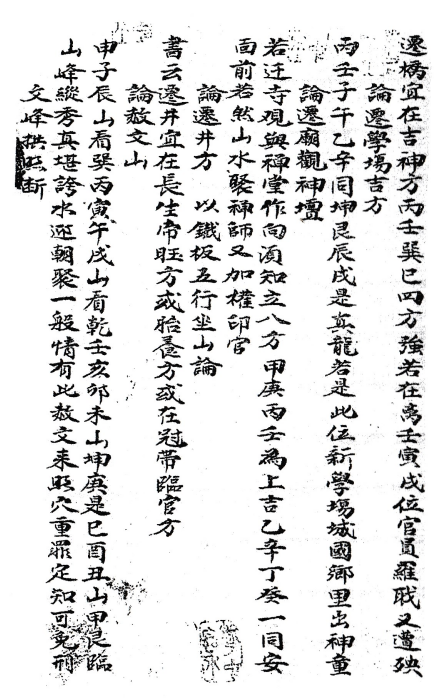 遷橋宜在吉神方丙壬巽巳四方強若在离壬寅戌位官員羅戝又遭殃
論遷學塲吉方
丙壬子午乙辛同坤艮辰戌是真龍若是此位新學塲城國鄉里出神童
論遷廟觀神壇
若迁寺观與禅堂作向湏知立八方 甲庚丙壬為上吉乙辛丁癸一同安
面前若然山水聚神師又加權印官
論遷井方 以鐵板五行坐山論
書云遷井宜在長生帝旺方或胎養方或在冠帶臨官方
論赦文山
申子辰山看巽丙寅午戌山看乾壬亥卯未山坤庚是巳酉丑山甲艮臨
山峰縱秀真堪誇水迎朝聚一般情有此赦文来照穴重罪定知可免刑
文峰拱照断